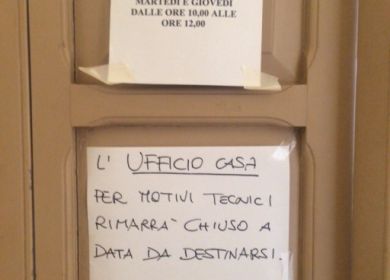 MARTEDÌ E GIOVEDÌ
DALLE ORE 10,00 ALLE
ORE 12,00
L' UFFICIO CASA
PER MOTIVI TECNICI
RIMARRA' CHIUSO A
DATA DA DESTINARSI.